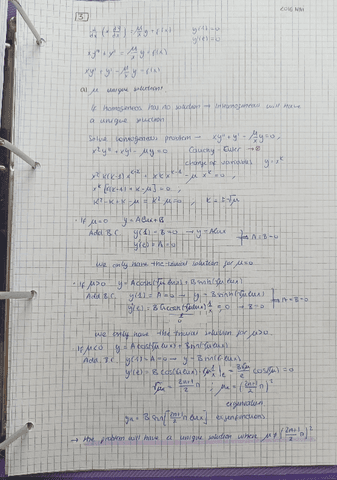 3
d/dx (x dy/dx) - μ/x y = f(x)    y(1) = 0
y'(e) = 0
xy'' + y' - μ/x y = f(x)
xy'' + y' - μ/x y = f(x)
(a) μ unique solution?
If homogeneous has no solution → inhomogeneous will have
a unique solution
Solve homogeneous problem → xy'' + y' - μ/x y = 0,
x²y'' + xy' - μy = 0    Cauchy Euler →
change of variables    y = x^k
x² k(k-1) x^k-2 + x k x^k-1 - μ x^k = 0,
x^k [k(k-1) + k - μ] = 0,
k² - k + k - μ = k² - μ = 0,    k = ±√μ
· If μ=0    y = A lnx + B
Add B.C.    y(1) = B = 0 → y = A lnx
y'(e) = A = 0    A = B = 0
We only have the trivial solution for μ=0.
· If μ>0    y = A cosh(√μ lnx) + B sinh(√μ lnx)
Add B.C.    y(1) = A = 0 → y = B sinh(√μ lnx)
A = B = 0
= 0 → B = 0
We only have the trivial solution for μ>0.
· If μ<0    y = A cos(√μ lnx) + B sin(√μ lnx)
Add. B.C.    y(1) = A = 0 → y = B sin(√μ lnx)
cos(√μ) = 0
√μn = (2n+1)/2 π ; μn = ((2n+1)/2 π)²
eigenvalues
yn = B sin[(2n+1)/2 π lnx]    eigenfunctions
→ The problem will have a unique solution when μ ≠ ((2n+1)/2 π)²